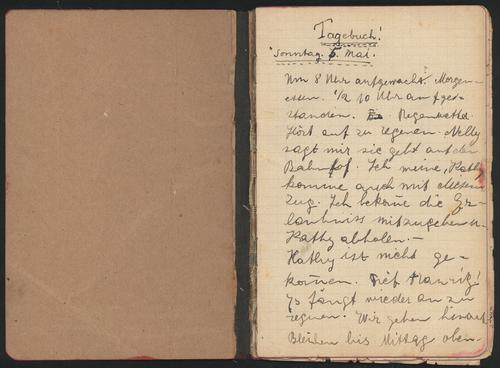 Tagebuch!
Sonntag. 5. Mai.
Um 8 Uhr aufgewacht. Morgen-
essen. 1/2 10 Uhr aufge-
standen. Regenwetter.
Hört auf zu regenen. Nelly
sagt mir sie geht auf den
Bahnhof. Ich meine, Kathy
komme auch mit diesem
Zug. Ich bekome die Er-
laubniss mitzugehen u.
Kathy abholen. –
Kathy ist nicht ge-
kommen. Tief traurig!
Es fängt wieder an zu
regnen. Wir gehen hinauf
Bleiben bis Mittag oben-